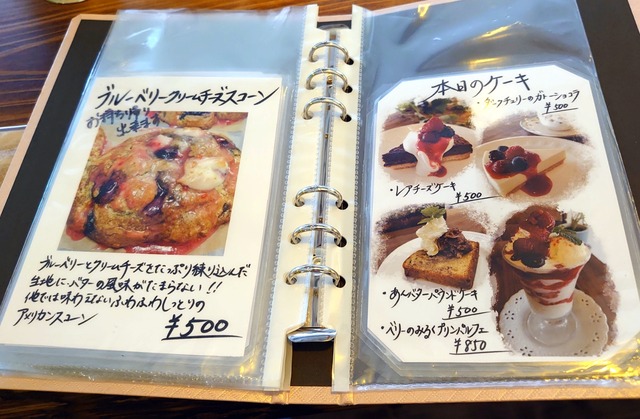 ブルーベリークリームチーズスコーン
お持ち帰り
出来ます
ブルーベリーとクリームチーズをたっぷり練り込んだ
生地に、バターの風味がたまらない!!
他では味わえないふわふわしっとりの
アメリカンスコーン
¥500
本日のケーキ
・ダークチェリーのガトーショコラ
¥500
・レアチーズケーキ
¥500
・あんバターパウンドケーキ
¥500
・ベリーのみるくプリンパルフェ
¥850